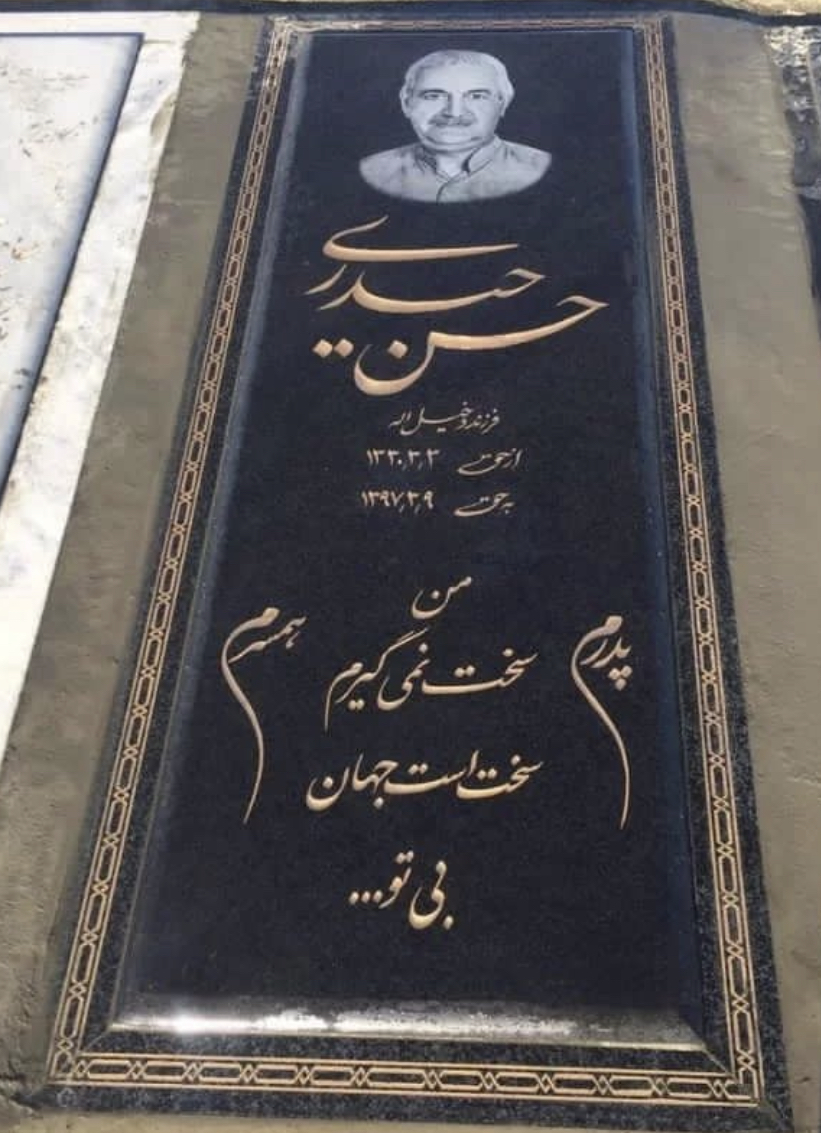 حسن حیدری
فرزند دخیل اله
از حق ۱۳۳۰٫۳٫۳
به حق ۱۳۹۷٫۳٫۹
من
پدرم سخت نمی گیرم همسرم
سخت است جهان
بی تو...